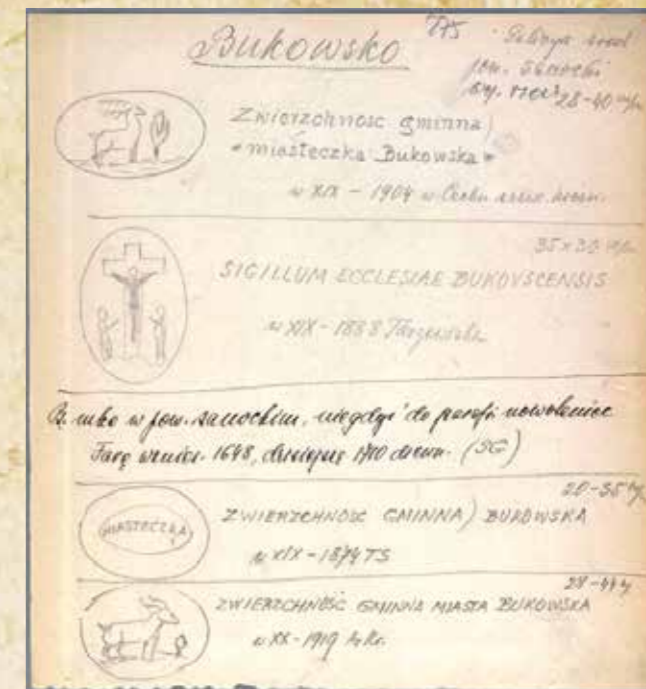 Bukowsko 775
pow. Sanocki
28-40 m/m
Zwierzchnosc gminna)
* miasteczka Bukowska *
w XIX - 1904 w Cechu
35 x 30 m/m
SIGILLUM ECCLESIAE BUKOVSCENSIS
w XIX - 1888
B. mko w pow. sanockim, niegdyś do parafii nowotaniec
Farę wznies. 1648, dzisiejszą 1710 drewn. (SG)
20-35 m/m
MIASTECZKA
ZWIERZCHNOSC GMINNA) BUKOWSKA
w XIX - 1874 TS
28-44
ZWIERZCHNOŚC GMINNA MIASTA BUKOWSKA
w XX - 1919